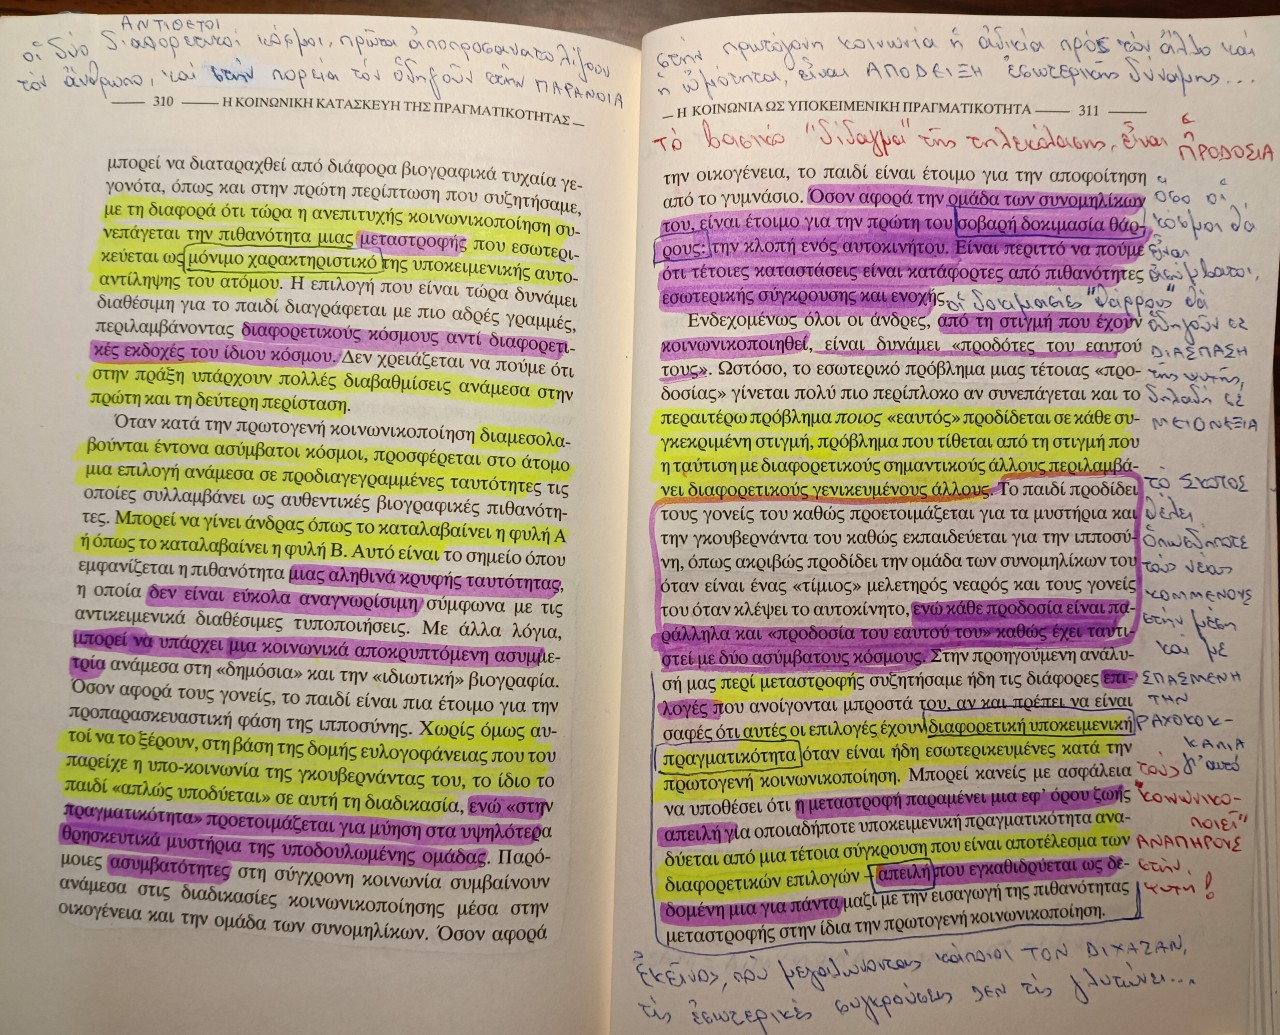 ΑΝΤΙΘΕΤΟΙ
οἱ δύο διαφορετικοί κόσμοι, πρῶτα ἀποπροσανατολίζουν
τόν ἄνθρωπο, καί στήν πορεία τόν ὁδηγοῦν στήν ΠΑΡΑΝΟΙΑ
310 Η ΚΟΙΝΩΝΙΚΗ ΚΑΤΑΣΚΕΥΗ ΤΗΣ ΠΡΑΓΜΑΤΙΚΟΤΗΤΑΣ
μπορεί να διαταραχθεί από διάφορα βιογραφικά τυχαία γε-
γονότα, όπως και στην πρώτη περίπτωση που συζητήσαμε,
με τη διαφορά ότι τώρα η ανεπιτυχής κοινωνικοποίηση συ-
νεπάγεται την πιθανότητα μιας μεταστροφής που εσωτερι-
κεύεται ως μόνιμο χαρακτηριστικό της υποκειμενικής αυτο-
αντίληψης του ατόμου. Η επιλογή που είναι τώρα δυνάμει
διαθέσιμη για το παιδί διαγράφεται με πιο αδρές γραμμές,
περιλαμβάνοντας διαφορετικούς κόσμους αντί διαφορετι-
κές εκδοχές του ίδιου κόσμου. Δεν χρειάζεται να πούμε ότι
στην πράξη υπάρχουν πολλές διαβαθμίσεις ανάμεσα στην
πρώτη και τη δεύτερη περίσταση.
Όταν κατά την πρωτογενή κοινωνικοποίηση διαμεσολα-
βούνται έντονα ασύμβατοι κόσμοι, προσφέρεται στο άτομο
μια επιλογή ανάμεσα σε προδιαγεγραμμένες ταυτότητες τις
οποίες συλλαμβάνει ως αυθεντικές βιογραφικές πιθανότη-
τες. Μπορεί να γίνει άνδρας όπως το καταλαβαίνει η φυλή Α
ή όπως το καταλαβαίνει η φυλή Β. Αυτό είναι το σημείο όπου
εμφανίζεται η πιθανότητα μιας αληθινά κρυφής ταυτότητας,
η οποία δεν είναι εύκολα αναγνωρίσιμη σύμφωνα με τις
αντικειμενικά διαθέσιμες τυποποιήσεις. Με άλλα λόγια,
μπορεί να υπάρχει μια κοινωνικά αποκρυπτόμενη ασυμμε-
τρία ανάμεσα στη «δημόσια» και την «ιδιωτική» βιογραφία.
Όσον αφορά τους γονείς, το παιδί είναι πια έτοιμο για την
προπαρασκευαστική φάση της ιπποσύνης. Χωρίς όμως αυ-
τοί να το ξέρουν, στη βάση της δομής ευλογοφάνειας που του
παρείχε η υπο-κοινωνία της γκουβερνάντας του, το ίδιο το
παιδί «απλώς υποδύεται» σε αυτή τη διαδικασία, ενώ «στην
πραγματικότητα» προετοιμάζεται για μύηση στα υψηλότερα
θρησκευτικά μυστήρια της υποδουλωμένης ομάδας. Παρό-
μοιες ασυμβατότητες στη σύγχρονη κοινωνία συμβαίνουν
ανάμεσα στις διαδικασίες κοινωνικοποίησης μέσα στην
οικογένεια και την ομάδα των συνομηλίκων. Όσον αφορά
στήν πρωτόγονη κοινωνία ἡ ἀδικία πρός τόν ἄλλο καί
ἡ ὠμότητα, εἶναι ΑΠΟΔΕΙΞΗ ἐσωτερικῆς δύναμης...
Η ΚΟΙΝΩΝΙΑ ΩΣ ΥΠΟΚΕΙΜΕΝΙΚΗ ΠΡΑΓΜΑΤΙΚΟΤΗΤΑ 311
τό βασικό "δίδαγμα" τῆς τηλεκόλασης, εἶναι ἡ ΠΡΟΔΟΣΙΑ
την οικογένεια, το παιδί είναι έτοιμο για την αποφοίτηση
από το γυμνάσιο. Όσον αφορά την ομάδα των συνομηλίκων
του, είναι έτοιμο για την πρώτη του σοβαρή δοκιμασία θάρ-
ρους: την κλοπή ενός αυτοκινήτου. Είναι περιττό να πούμε
ότι τέτοιες καταστάσεις είναι κατάφορτες από πιθανότητες
εσωτερικής σύγκρουσης και ενοχής.
Ενδεχομένως όλοι οι άνδρες, από τη στιγμή που έχουν
κοινωνικοποιηθεί, είναι δυνάμει «προδότες του εαυτού
τους». Ωστόσο, το εσωτερικό πρόβλημα μιας τέτοιας «προ-
δοσίας» γίνεται πολύ πιο περίπλοκο αν συνεπάγεται και το
περαιτέρω πρόβλημα ποιος «εαυτός» προδίδεται σε κάθε συ-
γκεκριμένη στιγμή, πρόβλημα που τίθεται από τη στιγμή που
η ταύτιση με διαφορετικούς σημαντικούς άλλους περιλαμβά-
νει διαφορετικούς γενικευμένους άλλους. Το παιδί προδίδει
τους γονείς του καθώς προετοιμάζεται για τα μυστήρια και
την γκουβερνάντα του καθώς εκπαιδεύεται για την ιπποσύ-
νη, όπως ακριβώς προδίδει την ομάδα των συνομηλίκων του
όταν είναι ένας «τίμιος» μελετηρός νεαρός και τους γονείς
του όταν κλέψει το αυτοκίνητο, ενώ κάθε προδοσία είναι πα-
ράλληλα και «προδοσία του εαυτού του» καθώς έχει ταυτι-
στεί με δύο ασύμβατους κόσμους. Στην προηγούμενη ανάλυ-
σή μας περί μεταστροφής συζητήσαμε ήδη τις διάφορες επι-
λογές που ανοίγονται μπροστά του, αν και πρέπει να είναι
σαφές ότι αυτές οι επιλογές έχουν διαφορετική υποκειμενική
πραγματικότητα όταν είναι ήδη εσωτερικευμένες κατά την
πρωτογενή κοινωνικοποίηση. Μπορεί κανείς με ασφάλεια
να υποθέσει ότι η μεταστροφή παραμένει μια εφ’ όρου ζωής
απειλή για οποιαδήποτε υποκειμενική πραγματικότητα ανα-
δύεται από μια τέτοια σύγκρουση που είναι αποτέλεσμα των
διαφορετικών επιλογών – απειλή που εγκαθιδρύεται ως δε-
δομένη μια για πάντα μαζί με την εισαγωγή της πιθανότητας
μεταστροφής στην ίδια την πρωτογενή κοινωνικοποίηση.
ὅσο οἱ
κόσμοι θά
εἶναι
ἀσύμβατοι,
οἱ δοκιμασίες "θάρρους" θά
ὁδηγοῦν σέ
ΔΙΑΣΠΑΣΗ
τῆς ψυχῆς,
δηλαδή σέ
ΜΕΙΟΝΕΞΙΑ
τό ΣΚΟΤΟΣ
θέλει
ὁπωσδήποτε
τούς νέους
ΚΟΜΜΕΝΟΥΣ
στήν μέση
καί μέ
ΣΠΑΣΜΕΝΗ
ΤΗΝ
ΡΑΧΟΚΟΚ-
ΚΑΛΙΑ
γι'αυτό
τούς
"κοινωνικο-
ποιεῖ"
ΑΝΑΠΗΡΟΥΣ
στήν
ψυχή!
Ἐκεῖνος, πού μεγαλώνοντας κάποιοι ΤΟΝ ΔΙΧΑΖΑΝ,
τίς ἐσωτερικές συγκρούσεις ΔΕΝ τίς γλυτώνει...